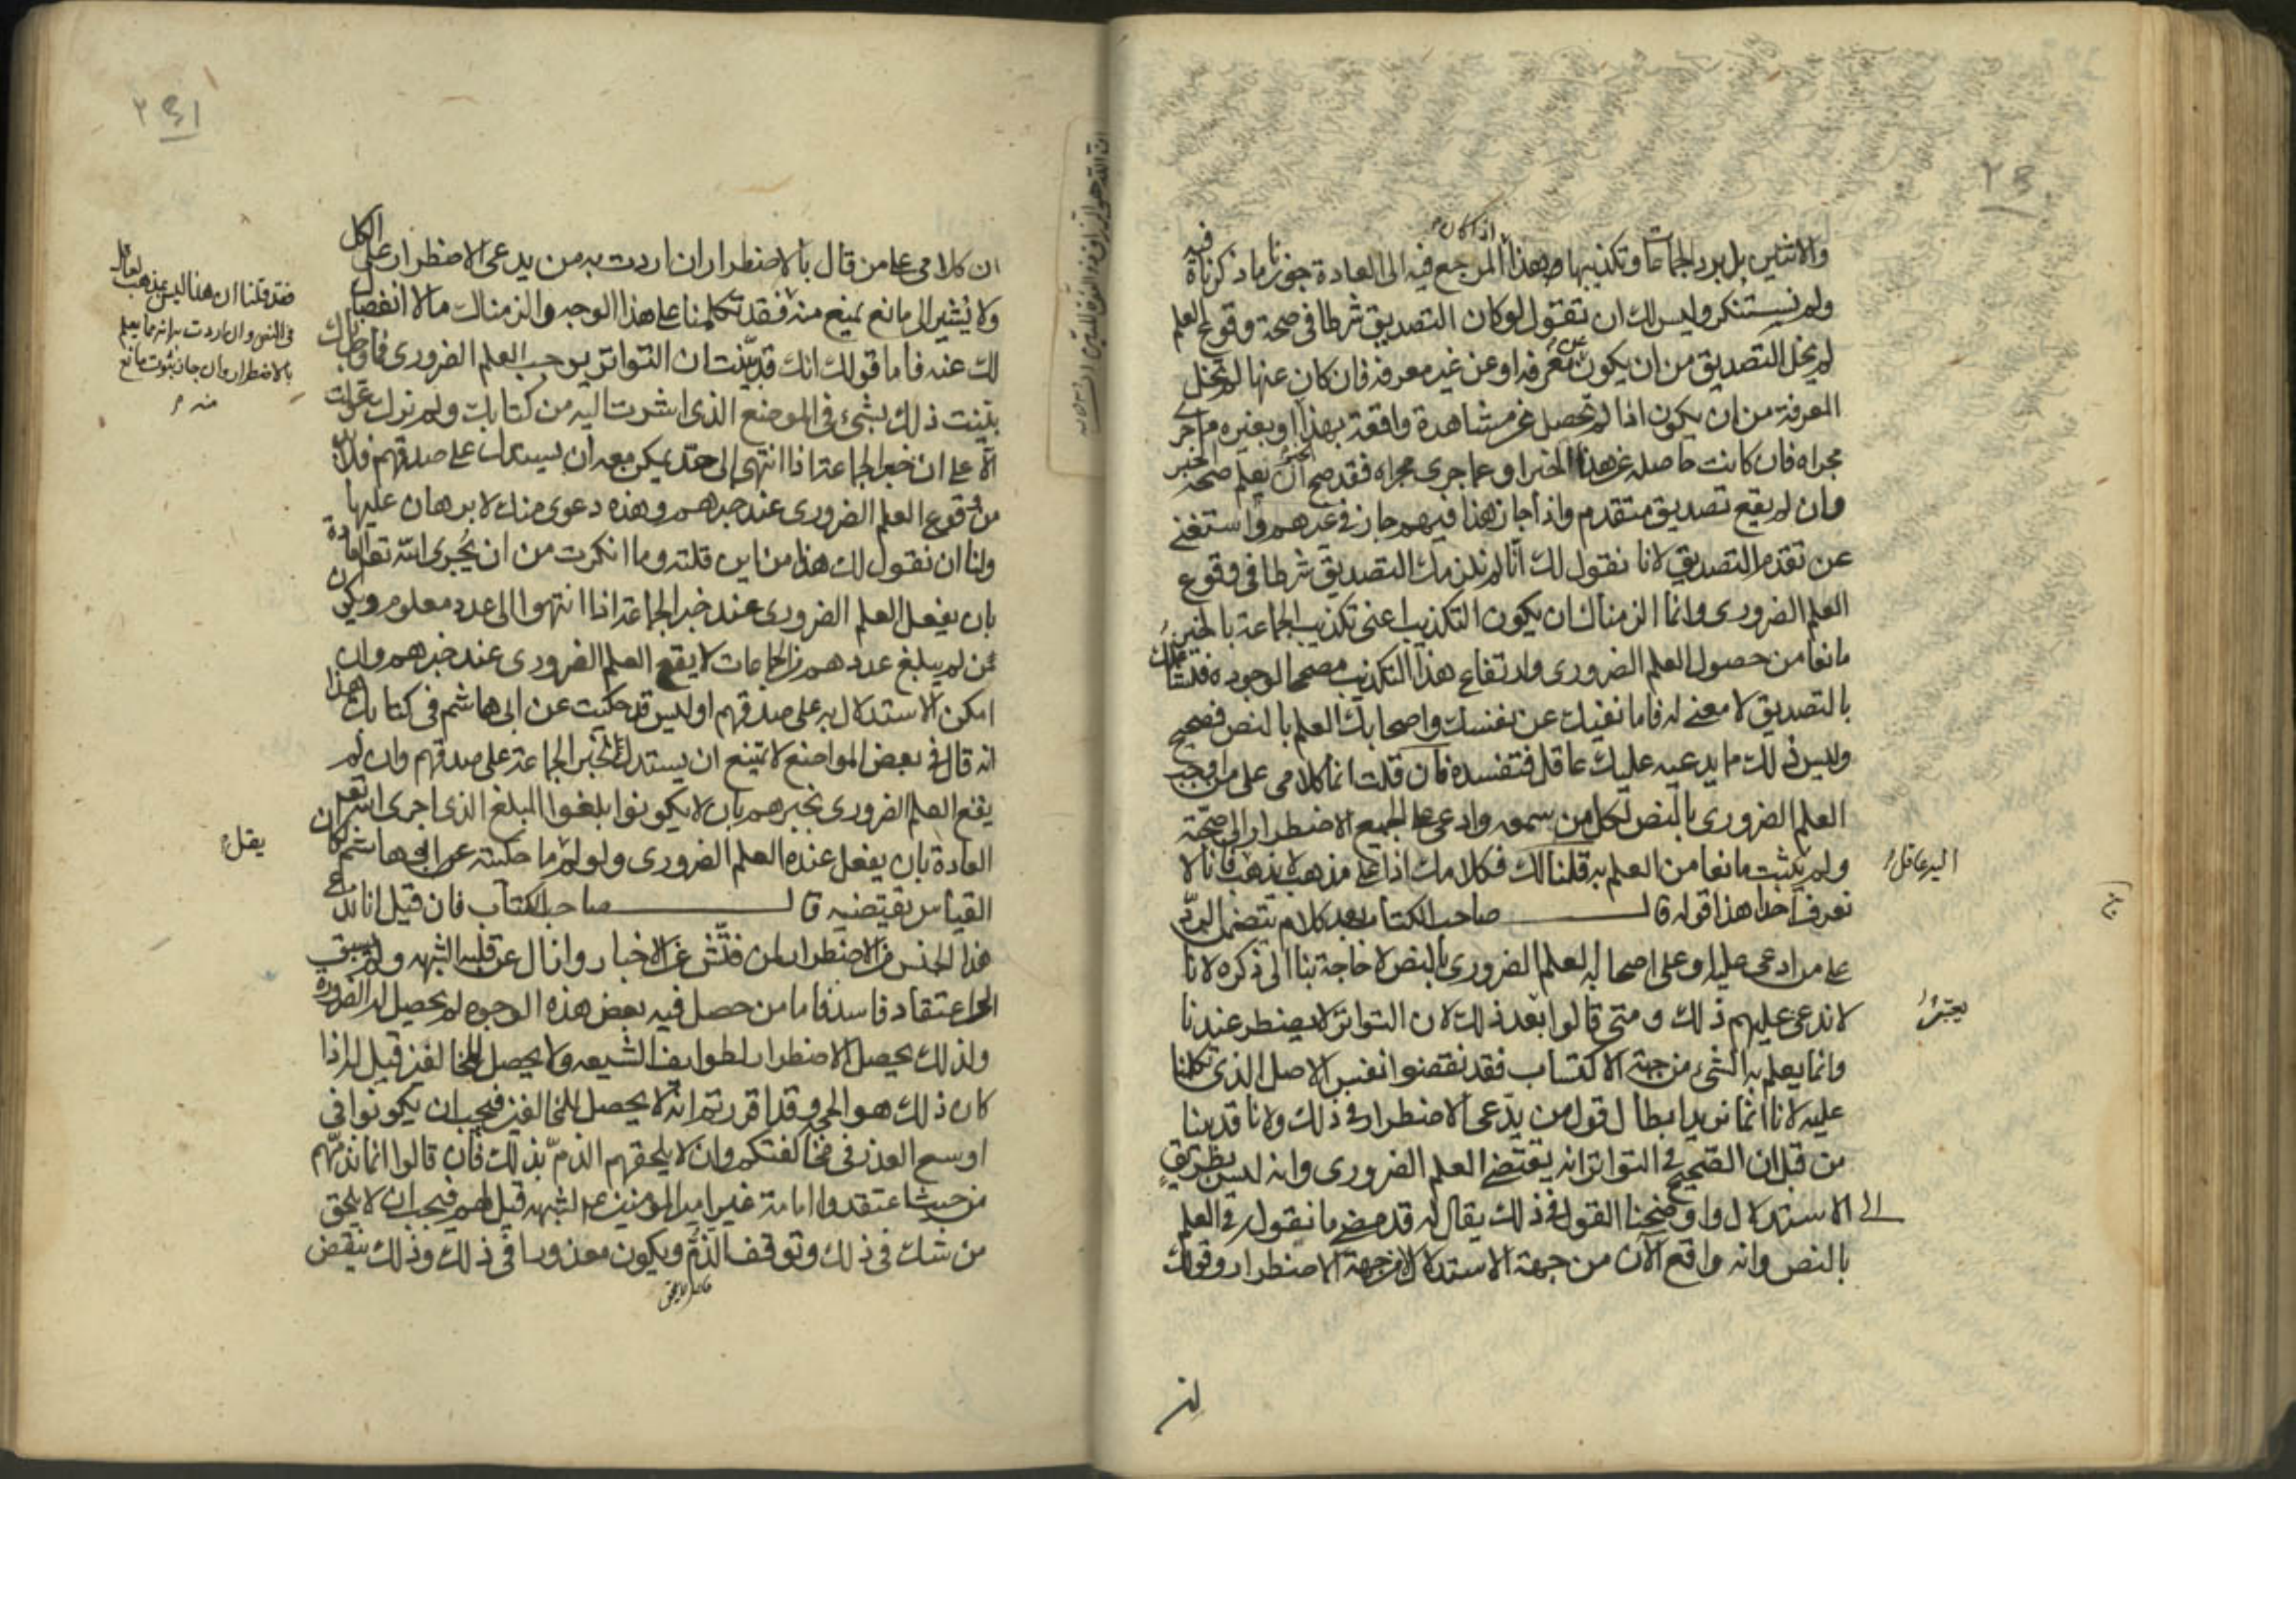 ٢٤٠
اذا كان
والاثنين بل برد الجماعات وتكذيبها وهذا المرجع فيه الى العادة جوزنا ما ذكرناه فيه
ولم نستنكر وليس لك ان تقول لو كان التصديق شرطا في صحة وقوع العلم
لم يخل التصديق من ان يكون عن معرفة او عن غير معرفة فان كان عنها لم تخل
المعرفة من ان يكون اذا لم تحصل عن مشاهدة واقعة بهذا او بغيره مما جرى
مجراه فان كانت حاصلة عن هذا الخبر او عما جرى مجراه فقد صح ان يعلم صحة الخبر
وان لم يقع تصديق متقدم واذا جاز هذا فيهم جاز في غيرهم واستغنى
عن تقدم التصديق لانا نقول لك انا لم نلزمك التصديق شرطا في وقوع
العلم الضروري وانما الزمناك ان يكون التكذيب اعنى تكذيب الجماعة بالخبر
مانعا من حصول العلم الضروري وارتفاع هذا التكذيب مصححا لوجوده
بالتصديق لا معنى له فاما نفيك عن نفسك واصحابك العلم بالنص فصحيح
وليس ذلك مما يدعيه عليك عاقل فتفسده فان قلت انما كلامي على من اوجب
العلم الضروري بالنص لكل من سمعه وادعى على الجميع الاضطرار الى صحته
ولم يثبت مانعا من العلم به قلنا لك فكلامك اذا على مذهب لا يذهب فانا لا
اليه عاقل
نعرف احدا هذا قوله قال صاحب الكتاب بعد كلام يتضمن الرد
على من ادعى عليه وعلى اصحابه العلم الضروري بالنص لا حاجة بنا الى ذكره لانا
لا ندعى عليهم ذلك ومتى قالوا بعد ذلك لان التواتر لا يضطر عندنا
يعتبر
وانما يعلم به الشيء من جهة الاكتساب فقد نقضوا نفس الاصل الذي تكلمنا
عليه لانا انما نريد ابطال قول من يدعى الاضطرار في ذلك ولانا قد بينا
من قبل ان الصحيح في التواتر انه يقتضى العلم الضروري وانه ليس بطريق
الى الاستدلال واوضحنا القول في ذلك يقال له قد مضى ما نقوله في العلم
بالنص وانه واقع الآن من جهة الاستدلال لا من جهة الاضطرار وقولك
٢٤١
ان كلامى على من قال بالاضطرار ان اردت به من يدعى الاضطرار على الكل
ولا يشير الى مانع يمنع منه فقد تكلمنا على هذا الوجه والزمناك ما لا انفصال
لك عنه فاما قولك انك قد بينت ان التواتر يوجب العلم الضروري فما وجدناك
بينت ذلك بشيء في الموضع الذي اشرت اليه من كتابك ولم نرك عولت
الا على ان خبر الجماعة اذا انتهى الى حد يمكن معه ان يستدل على صدقهم فلا بد
من وقوع العلم الضروري عند خبرهم وهذه دعوى منك لا برهان عليها
ولنا ان نقول لك هذا من اين قلته وما انكرت من ان يجرى الله تعالى العادة
بان يفعل العلم الضروري عند خبر الجماعة اذا انتهوا الى عدد معلوم ويكون
من لم يبلغ عددهم من الجماعات لا يقع العلم الضروري عند خبرهم وان
امكن الاستدلال به على صدقهم اوليس قد حكيت عن ابي هاشم في كتابك هذا
انه قال في بعض المواضع لا يمتنع ان يستدل بخبر الجماعة على صدقهم وان لم
يقع العلم الضروري بخبرهم بان لا يكونوا بلغوا المبلغ الذي اجرى الله تعالى
العادة بان يفعل عنده العلم الضروري ولو لم ما حكيته عن ابي هاشم لكان
يقل
القياس يقتضيه قال صاحب الكتاب فان قيل انا ندعى
هذا الجنس من الاضطرار لمن فتش عن الاخبار وازال عن قلبه الشبهه ولم يسبق
الى اعتقاد فاسد فاما من حصل فيه بعض هذه الوجوه لم يحصل له الضرورة
ولذلك يحصل الاضطرار لطوايف الشيعه ولا يحصل للمخالفين قيل له اذا
كان ذلك هو الحق وقد اقررتم انه لا يحصل للمخالفين فيجب ان يكونوا في
اوسع العذر في مخالفتكم وان لا يلحقهم الذم بذلك فان قالوا انما نذمهم
من حيث اعتقدوا امامة غير امير المؤمنين ع للشبهه قيل لهم فيجب ان لا يلحق
من شك في ذلك وتوقف الذم ويكون معذورا في ذلك وذلك ينقض
فقد قلنا ان هذا ليس بمذهب لعاقل
في النص وان اردت به انه مما يعلم
بالاضطرار وان جاز ثبوت مانع
منه